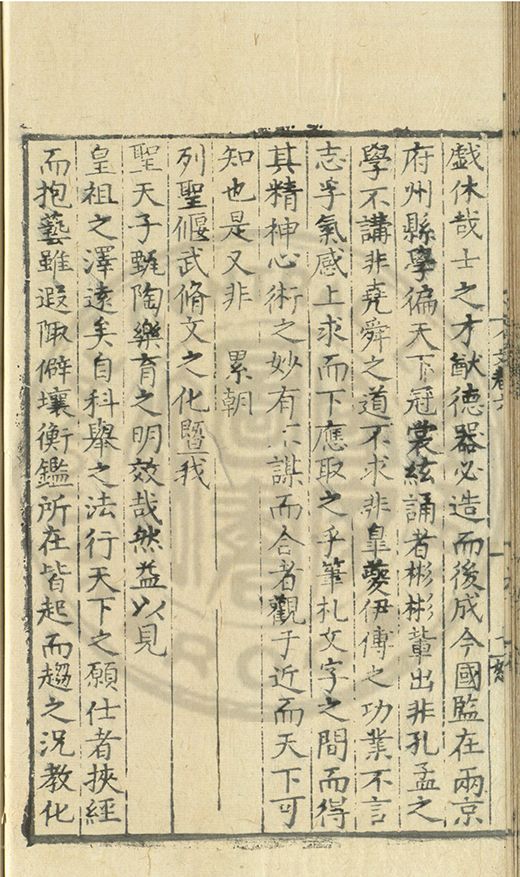 戲休哉士之才猷德器必造而後成今國監在兩京
府州縣學徧天下冠裳絃誦者彬彬輩出非孔孟之
學不講非堯舜之道不求非臯夔伊傅之功業不言
志孚氣感上求而下應取之乎筆札文字之間而得
其精神心術之妙有不謀而合者觀于近而天下可
知也是又非　累朝
列聖偃武脩文之化曁我
聖天子甄陶樂育之明效哉然益以見
皇祖之澤遠矣自科舉之法行天下之願仕者挾經
而抱藝雖遐陬僻壤衡鑑所在皆起而趨之況教化